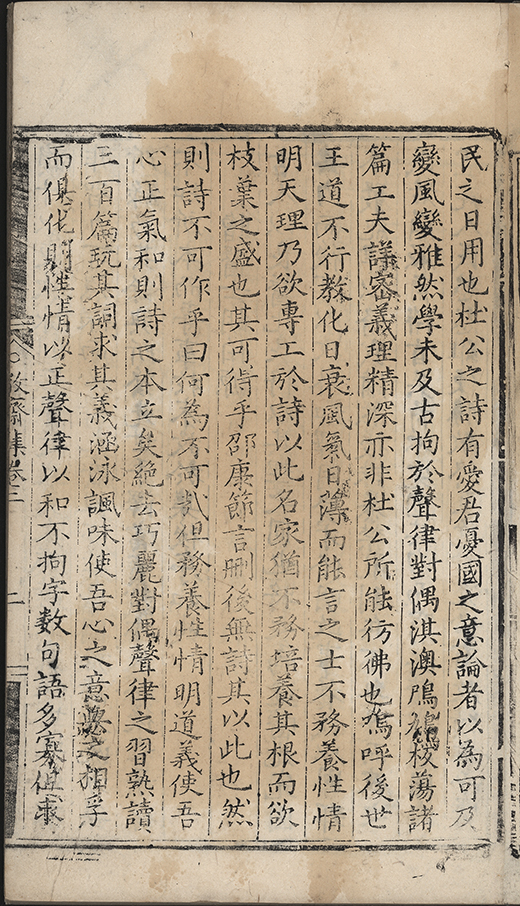 民之日用也杜公之詩有愛君憂國之意論者以為可及
變風變雅然學未及古拘於聲律對偶淇澳鳲鳩板蕩諸
篇工夫謹密義理精深亦非杜公所能彷彿也嗚呼後世
王道不行教化日衰風氣日薄而能言之士不務養性情
明天理乃欲專工於詩以此名家猶不務培養其根而欲
枝葉之盛也其可得乎邵康節言刪後無詩其以此也然
則詩不可作乎曰何為不可哉但務養性情明道義使吾
心正氣和則詩之本立矣絕去巧麗對偶聲律之習熟讀
三百篇玩其詞求其義涵泳諷味使吾心之意與之相孚
而俱化則性情以正聲律以和不拘字數句語多寡但求
敬齋集卷二